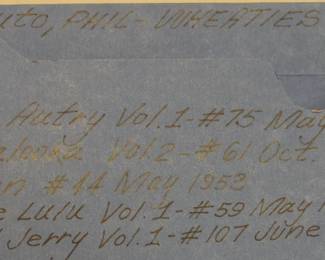 uto, PHIL - WHEATIES
Autry Vol. 1 - #75 May
Vol. 2 - #61 Oct.
n #44 May 1953
e LULU Vol. 1 - #59 May 1
Jerry Vol. 1 - #107 June